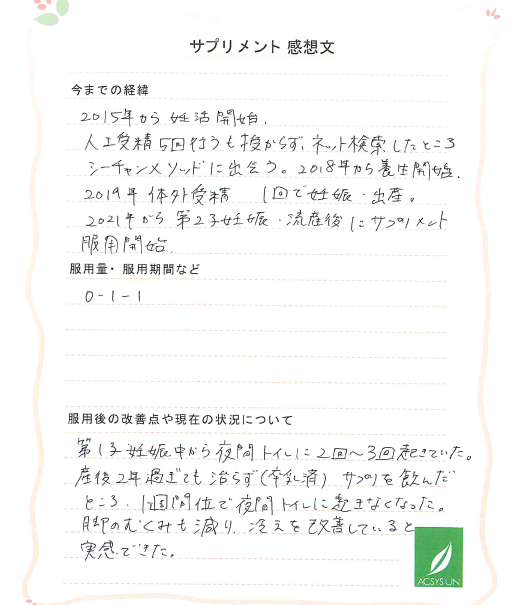 サプリメント 感想文
今までの経緯
2015年から妊活開始.
人工受精5回行うも授からず、ネット検索したところ
シーチャンメソッドに出会う。2018年から養生開始.
2019年 体外受精 1回で妊娠・出産。
2021年から 第2子妊娠・流産後にサプリメント
服用開始.
服用量・服用期間など
0-1-1
服用後の改善点や現在の状況について
第1子妊娠中から夜間トイレに2回〜3回起きていた。
産後2年過ぎても治らず(卒乳済) サプリを飲んだ
ところ、1週間位で夜間トイレに起きなくなった。
脚のむくみも減り、冷えを改善していると
実感できた。
ACSYSUN